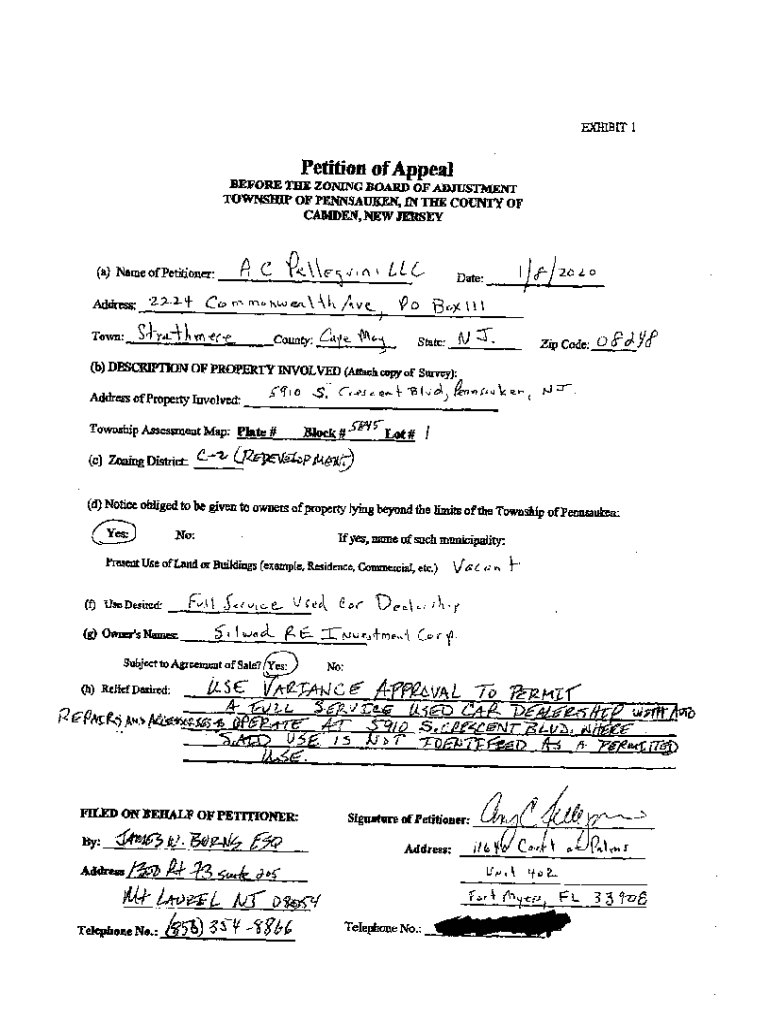 EXHIBIT 1
Petition of Appeal
BEFORE THE ZONING BOARD OF ADJUSTMENT
TOWNSHIP OF PENNSAUKEN, IN THE COUNTY OF
CAMDEN, NEW JERSEY
(a) Name of Petitioner: A C Pellegrini LLC Date: 1/8/2020
Address: 2224 Commonwealth Ave, PO Box 111
Town: Strathmere County: Cape May State: NJ. Zip Code: 08248
(b) DESCRIPTION OF PROPERTY INVOLVED (Attach copy of Survey):
Address of Property Involved: 5910 S. Crescent Blvd, Pennsauken, NJ.
Township Assessment Map: Plate # Block # 5845 Lot # 1
(c) Zoning District: C-2 (REDEVELOPMENT)
(d) Notice obliged to be given to owners of property lying beyond the limits of the Township of Pennsauken:
Yes: No: If yes, name of such municipality:
Present Use of Land or Buildings (example, Residence, Commercial, etc.) Vacant
(f) Use Desired: Full Service Used Car Dealership
(g) Owner's Names: Silwad RE Investment Corp.
Subject to Agreement of Sale? Yes: No:
(h) Relief Desired: USE VARIANCE APPROVAL TO PERMIT
A FULL SERVICE USED CAR DEALERSHIP WITH AUTO
REPAIRS AND TO OPERATE AT 5910 S. CRESCENT BLVD. WHERE
SAID USE IS NOT IDENTIFIED AS A PERMITTED
USE.
FILED ON BEHALF OF PETITIONER: Signature of Petitioner:
By: JAMES W. BURNS ESQ Address: 11640 Court of Palms
Address 1300 Rt 73 suite 205 Unit 402
Mt LAUREL NJ 08054 Fort Myers, FL 33908
Telephone No.: (856) 354-8866 Telephone No.: